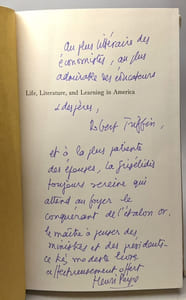 Au plus littéraire des
économistes, au plus
admirable des éducateurs
Life, Literature, and Learning in America
& des pères,
Robert Triffin,
et à la plus patiente
des épouses, la Grisélidis
toujours sereine qui
attend au foyer le
conquérant de l'étalon or,
le maître à penser des
ministres et des présidents
ce modeste livre
affectueusement offert
Henri Peyre